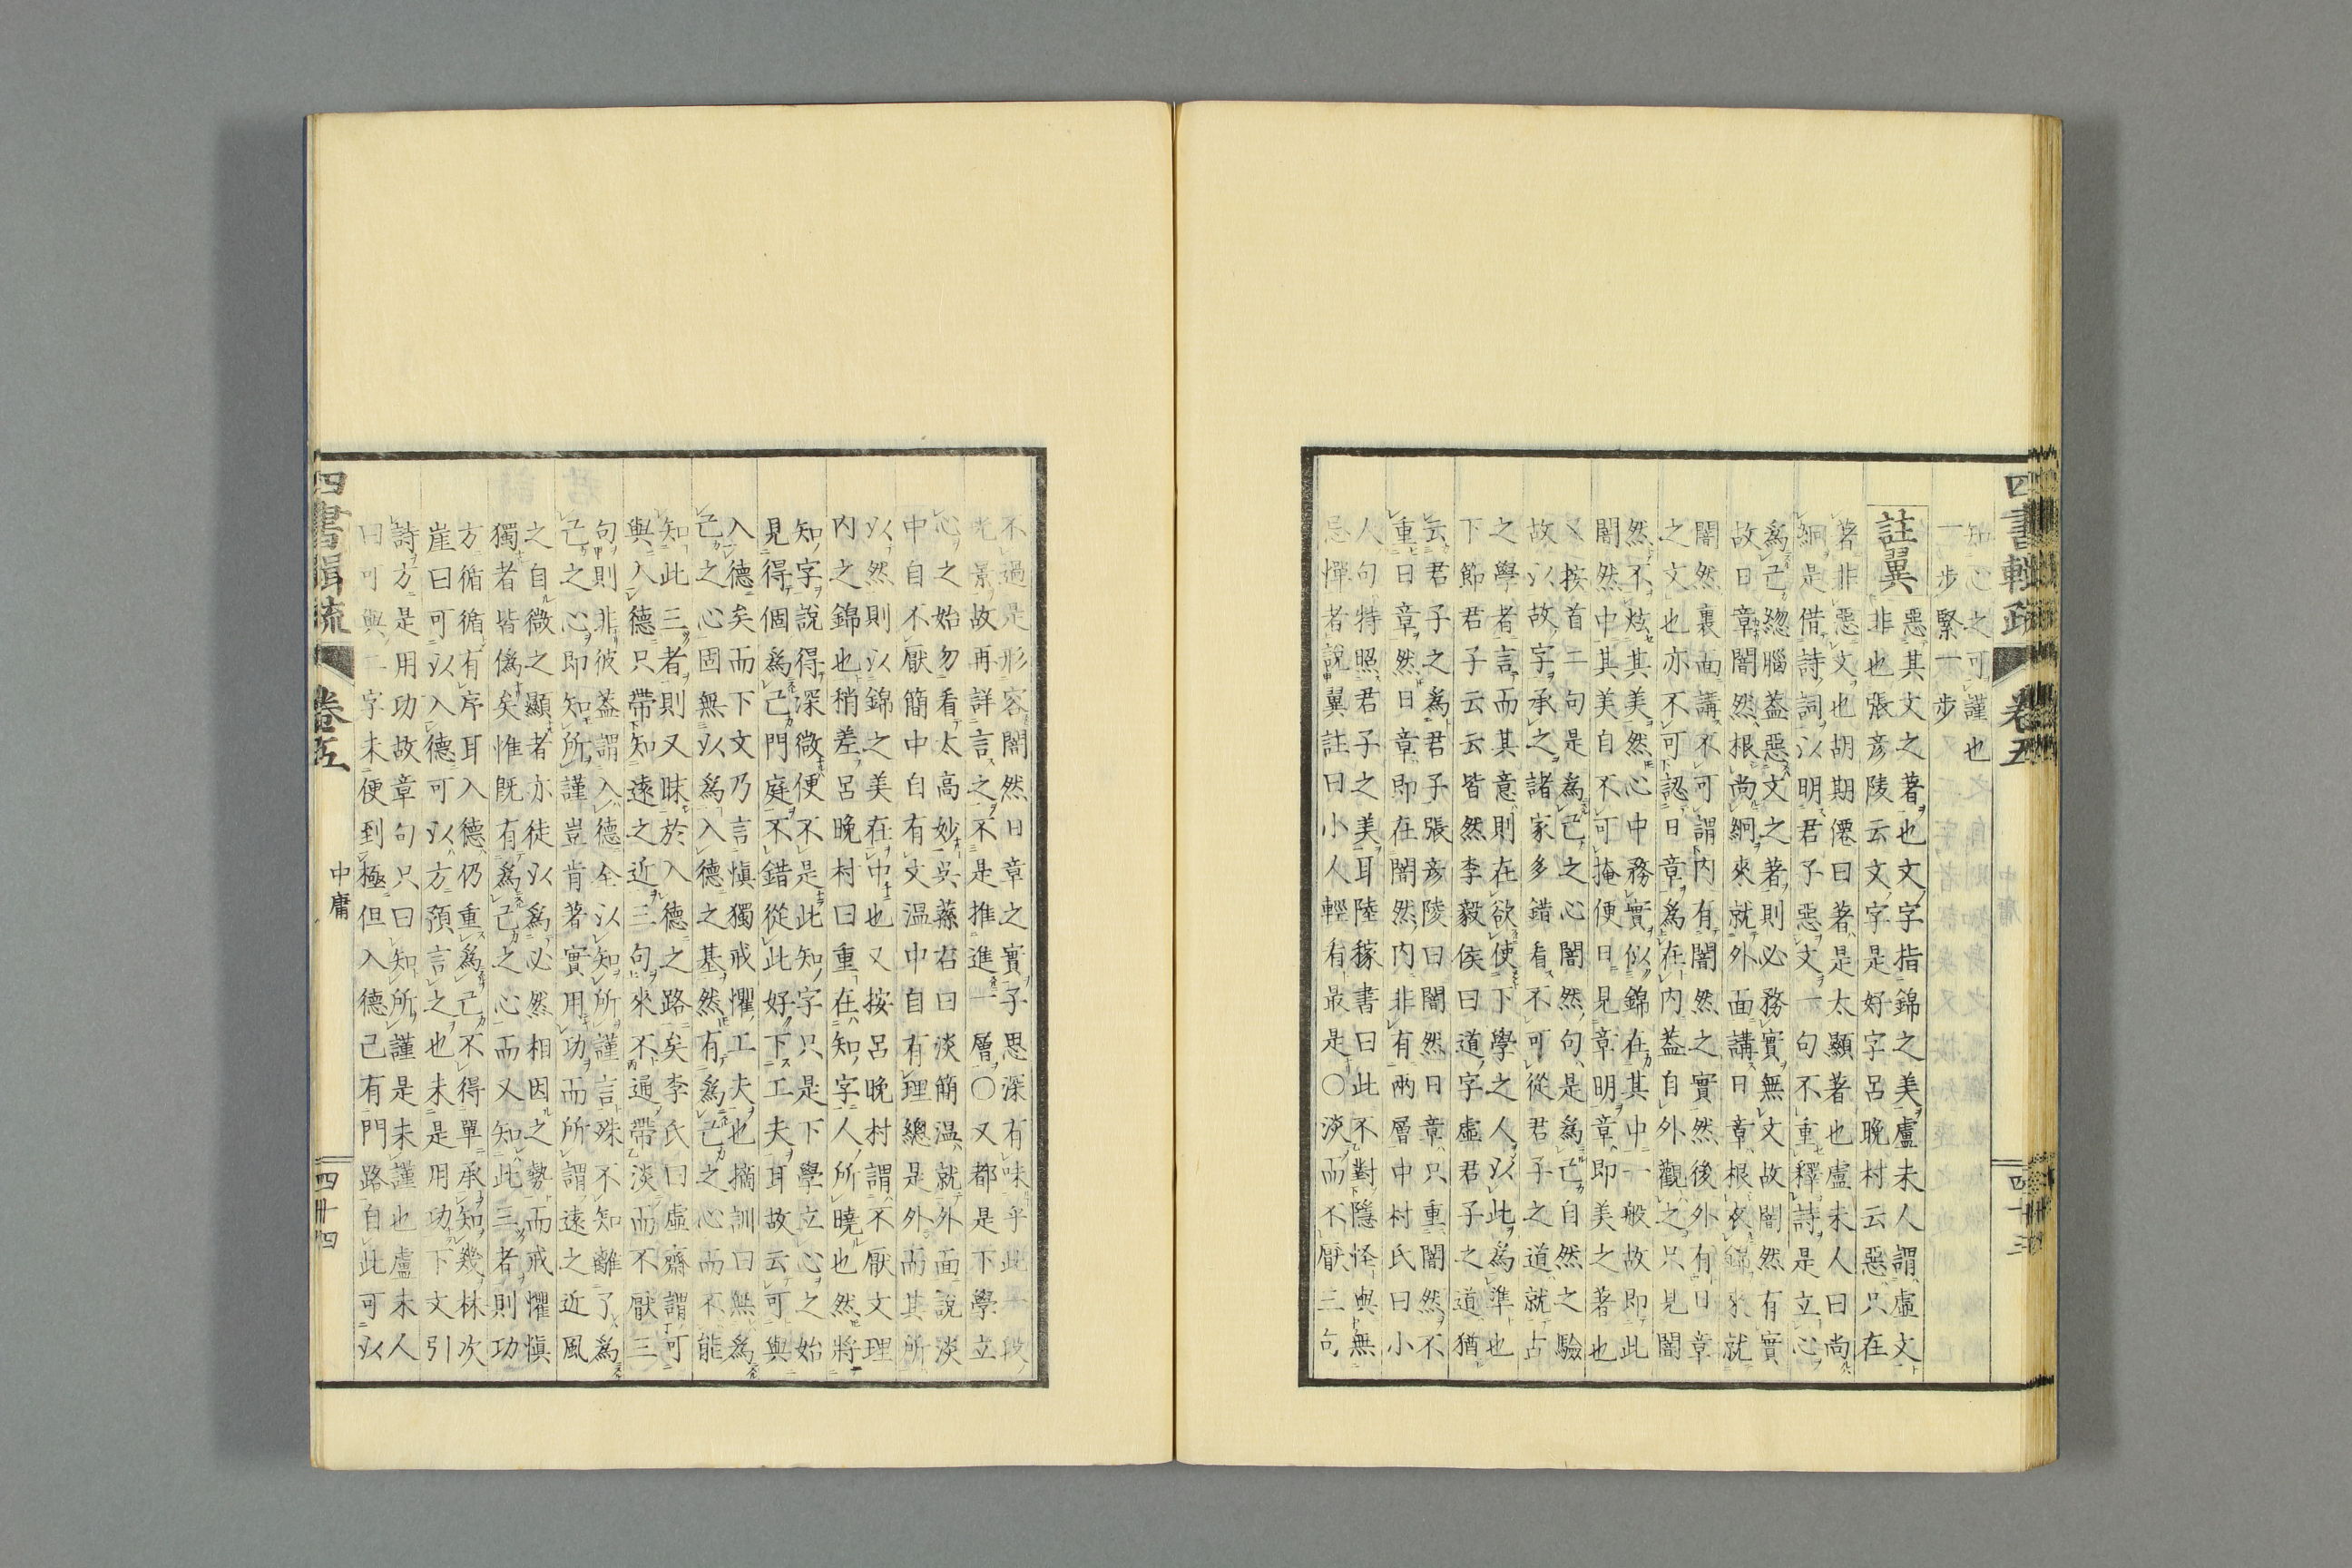 四書輯疏
卷五
四十三
知心之可謹也
一步緊一步
註翼
惡其文之著也文字指錦之美盧未人謂虛文
非也張彥陵云文字是好字呂晚村云惡只在
著非惡文也胡期僊曰著是太顯著也盧未人曰尚
絅是借詩詞以明君子惡文一句不重釋詩是立心
爲己總腦蓋惡文之著則必務實無文故闇然有實
故日章闇然根尚絅來就外面講日章根衣錦來就
闇然裏面講不可謂內有闇然之實然後外有日章
之文也亦不可認日章爲在內蓋自外觀之只見闇
然不炫其美然心中務實似錦在其中一般故即此
闇然中其美自不可掩便日見章明章即美之著也
又按首二句是爲己之心闇然句是爲己自然之驗
故以故字承之諸家多錯看不可從君子之道就占
之學者言而其意則在欲使下學之人以此爲準也
下節君子云云皆然李毅侯曰道字虛君子之道猶
云君子之爲君子張彥陵曰闇然日章只重闇然不
重日章然日章即在闇然內非有兩層中村氏曰小
人句特照君子之美耳陸稼書曰此不對隱怪與無
忌憚者說翼註曰小人輕有最是○淡而不厭三句
不過是形容闇然日章之實子思深有味乎此段
光景故再詳言之不是推進一層○又都是下學立
心之始勿看太高妙吳蓀右曰淡簡温就外面說淡
中自不厭簡中自有文温中自有理總是外而其所
以然則以錦之美在中也又按呂晚村謂不厭文理
內之錦也稍差呂晚村曰重在知字人所曉也然將
知字說得深微便不是此知字只是下學立心之始
見得個爲己門庭不錯從此好下工夫耳故云可與
入德矣而下文乃言愼獨戒懼工夫也摘訓曰無爲
己之心固無以爲入德之基然有爲己之心而不能
知此三者則又昧於入德之路矣李氏曰虛齋謂可
與入德只帶知遠之近三句來不通帶淡而不厭三
句則非彼蓋謂入德全以知所謹言殊不知離了爲
己之心即知所謹豈肯著實用功而所謂遠之近風
之自微之顯者亦徒以爲必然相因之勢而戒懼愼
獨者皆僞矣惟既有爲己之心而又知此三者則功
方循循有序耳入德仍重爲己不得單承知幾林次
崖曰可以入德可以方預言之也未是用功下文引
詩方是用功故章句只曰知所謹是未謹也盧未人
曰可與二字未便到極但入德已有門路自此可以
四書輯疏
卷五
中庸
四十四